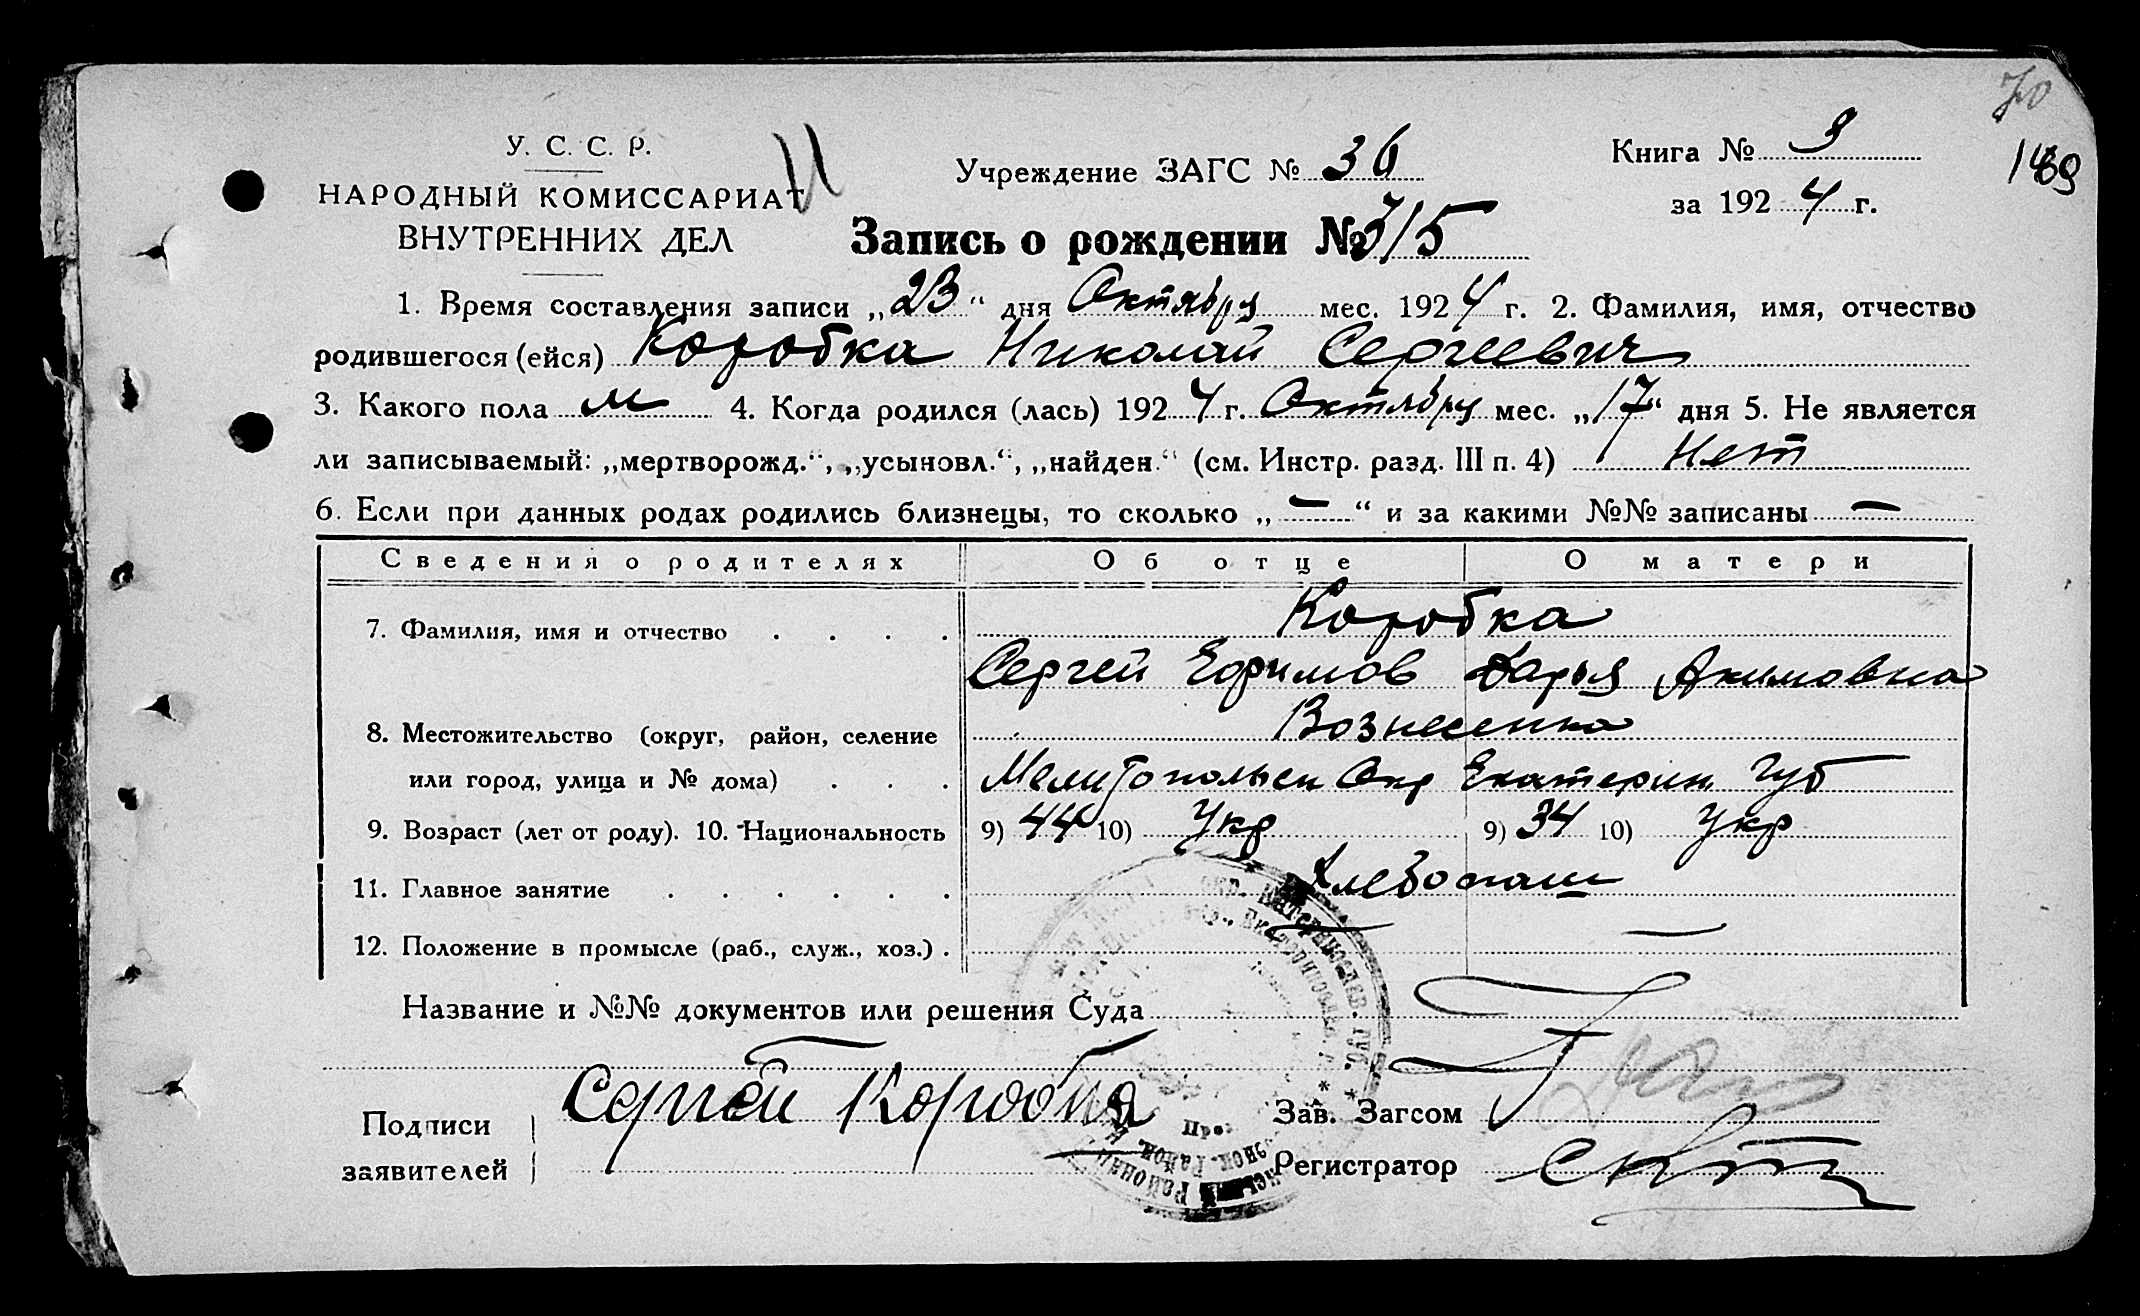 70
У. С. С. Р.
НАРОДНЫЙ КОМИССАРИАТ
ВНУТРЕННИХ ДЕЛ
Учреждение ЗАГС № 36
Книга № 3
за 1924 г.
Запись о рождении № 315
1. Время составления записи „23“ дня Октября мес. 1924 г. 2. Фамилия, имя, отчество
родившегося (ейся) Коробка Николай Сергеевич
3. Какого пола м 4. Когда родился (лась) 1924 г. Октября мес. „17“ дня 5. Не является
ли записываемый: „мертворожд.“, „усыновл.“, „найден.“ (см. Инстр. разд. III п. 4) Нет
6. Если при данных родах родились близнецы, то сколько „—“ и за какими №№ записаны —
Сведения о родителях Об отце О матери
7. Фамилия, имя и отчество . . . . Коробка
Сергей Ефимов Дарья Акимовна
8. Местожительство (округ, район, селение Вознесенка
или город, улица и № дома) . . . Мелитопольск Окр Екатерин Губ
9. Возраст (лет от роду). 10. Национальность 9) 44 10) Укр 9) 34 10) Укр
11. Главное занятие . . . . . . Хлебопаш
12. Положение в промысле (раб., служ., хоз.) . — —
Название и №№ документов или решения Суда
Подписи
заявителей
Сергей Коробка
Зав. Загсом
Регистратор